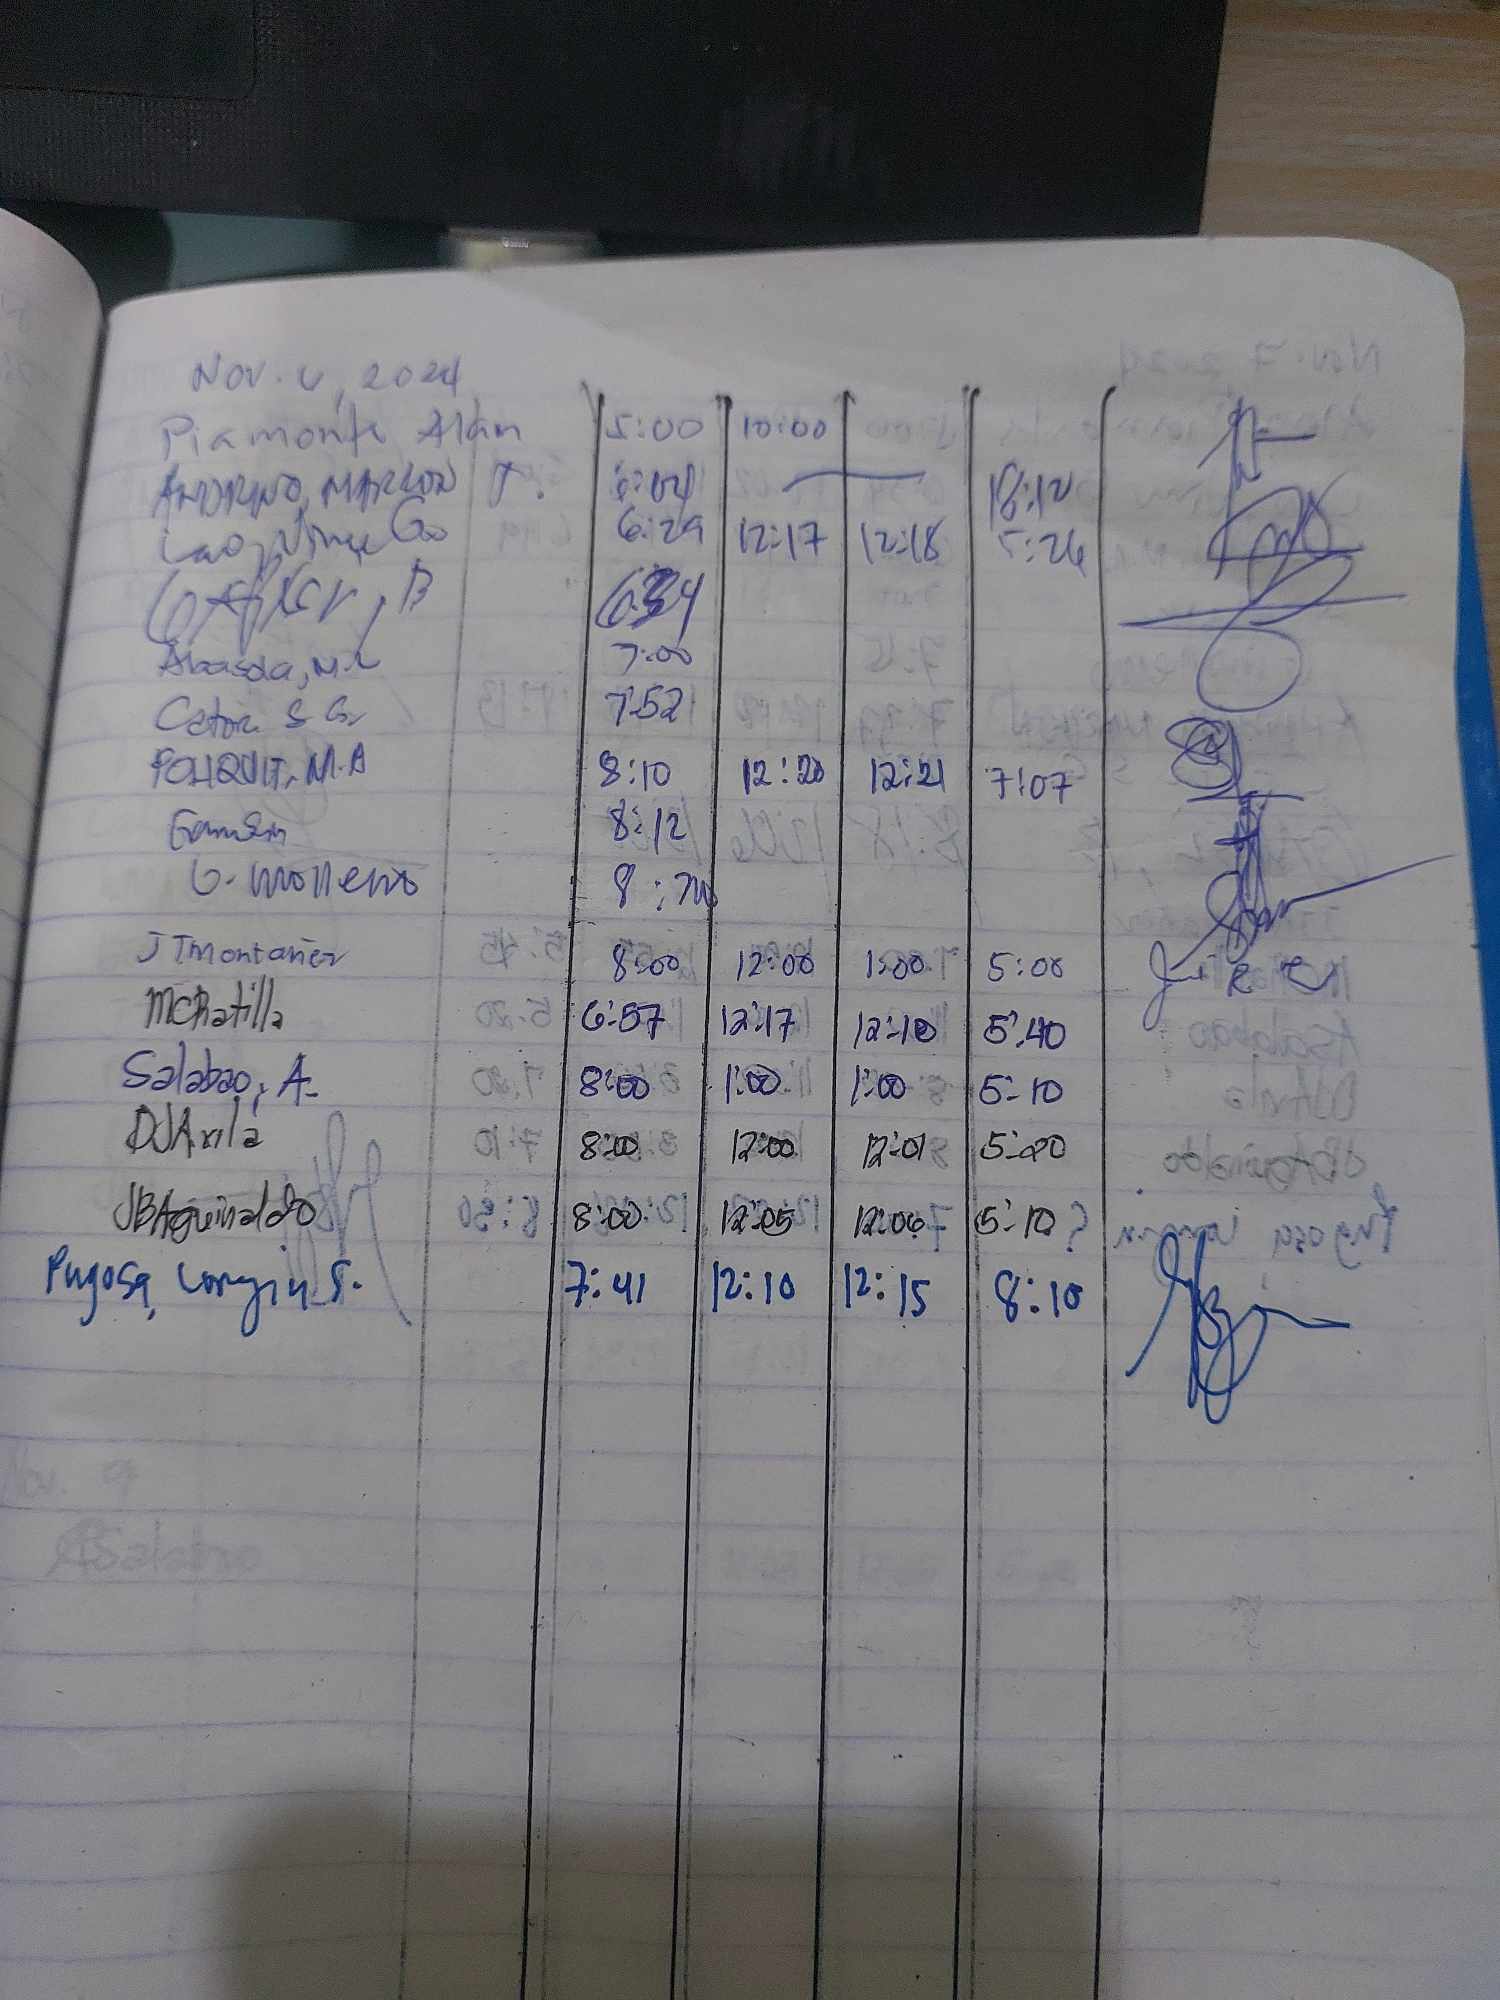 Nov. 6, 2024
Piamonte Alan 5:00 10:00
ANDRINO, MARLON J. 6:04 18:12
Lao, Vince Go 6:29 12:17 12:18 5:26
B 6:34
Abasola, M.L 7:00
S G. 7:52
POLIQUIT, M.A 8:10 12:20 12:21 7:07
8:12
G. Molleno 8:
JTMontañer 8:00 12:00 1:00 5:00
MCRatilla 6:57 12:17 12:18 5:40
Salabao, A. 8:00 1:00 1:00 5:10
DJAvila 8:00 12:00 12:01 5:20
JBAguinaldo 8:00 12:05 12:06 5:10
Pugosa, Longin S. 7:41 12:10 12:15 8:10